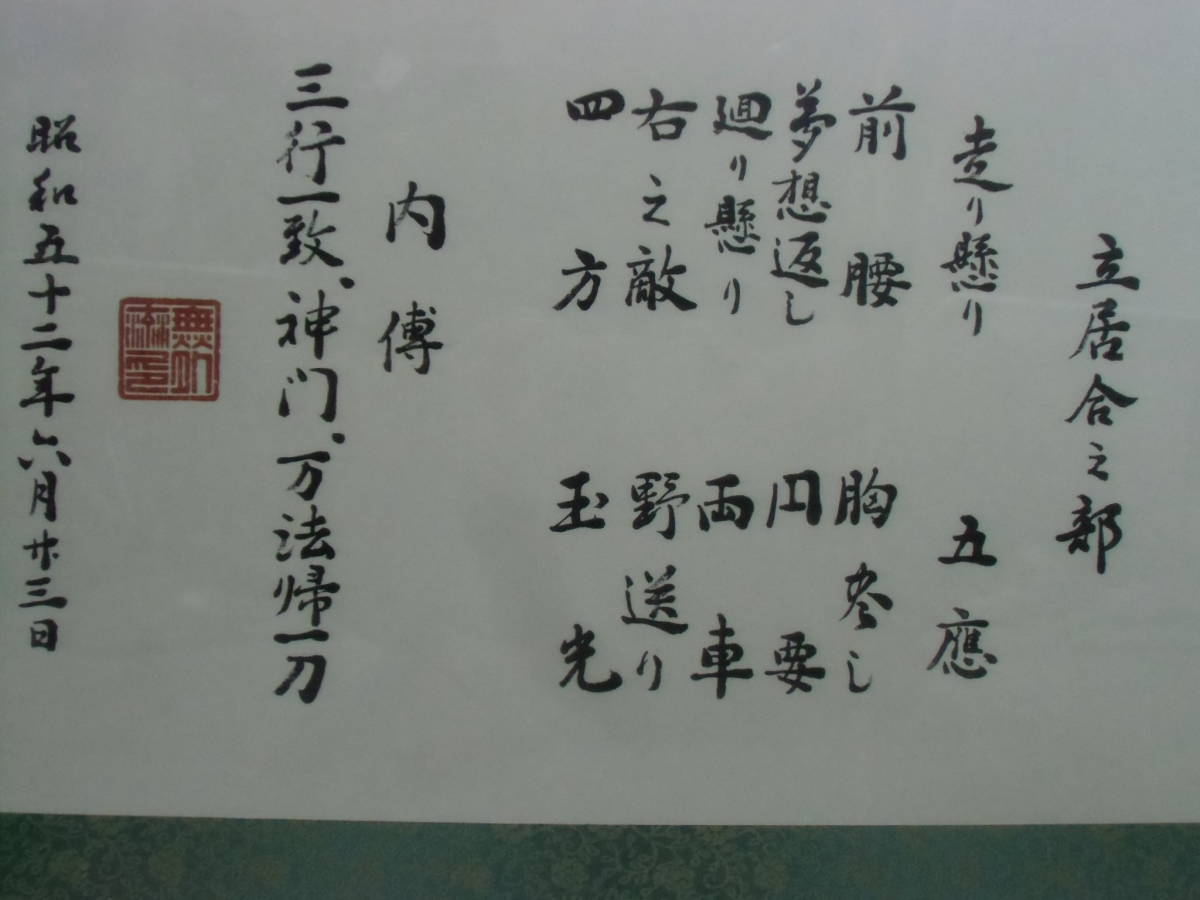 立居合之部
走り懸り 五應
前腰 胸尽し
夢想返し 円要
廻り懸り 両車
右之敵 野送り
四方 玉光
内傳
三行一致、神门、万法帰一刀
昭和五十二年六月廿三日